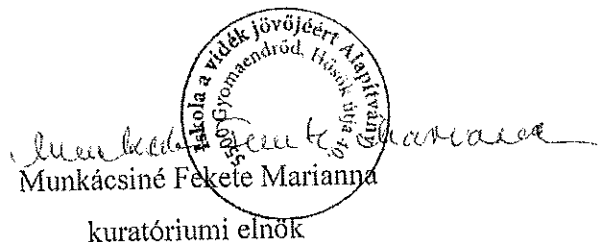 Iskola a vidék jövőjéért Alapítvány
5500 Gyomaendrőd, Hősök útja 40.
Munkácsiné Fekete Marianna
kuratóriumi elnök